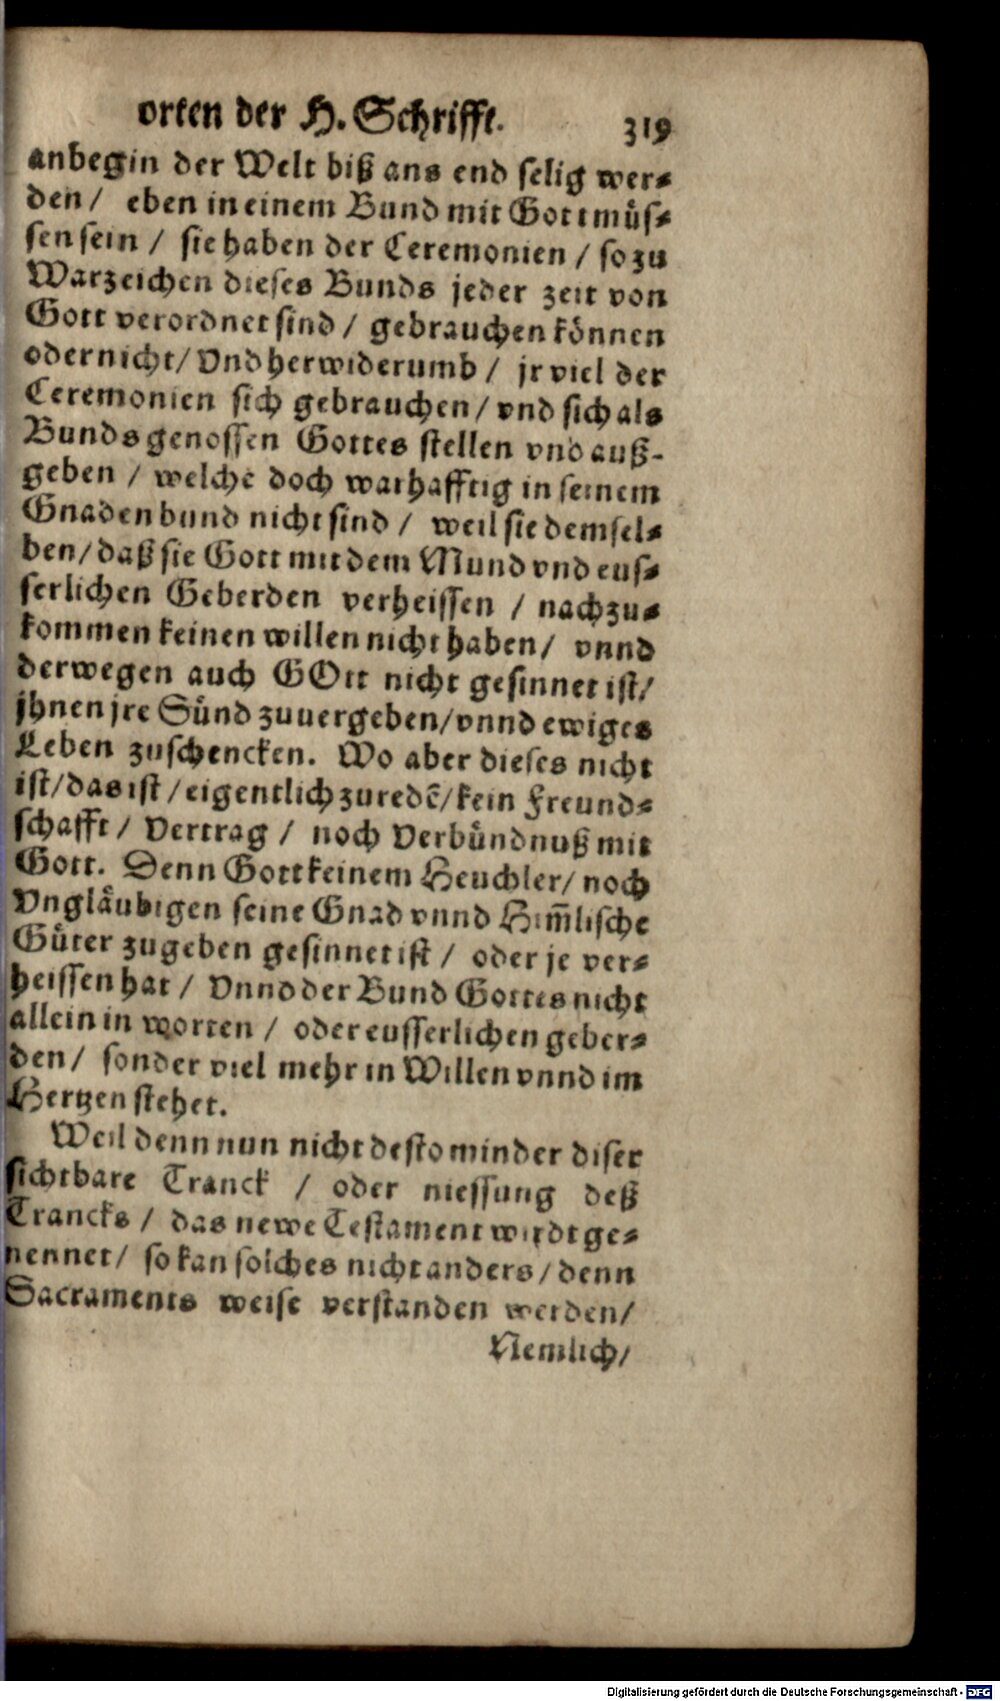 orten der H. Schrifft. 319
anbegin der Welt biß ans end selig wer⸗
den / eben in einem Bund mit Gott muͤs⸗
sen sein / sie haben der Ceremonien / so zu
Warzeichen dieses Bunds jeder zeit von
Gott verordnet sind / gebrauchen koͤnnen
oder nicht / Vnd herwiderumb / jr viel der
Ceremonien sich gebrauchen / vnd sich als
Bundsgenossen Gottes stellen vnd auß-
geben / welche doch warhafftig in seinem
Gnadenbund nicht sind / weil sie demsel⸗
ben / daß sie Gott mit dem Mund vnd eus⸗
serlichen Geberden verheissen / nachzu⸗
kommen keinen willen nicht haben / vnnd
derwegen auch GOtt nicht gesinnet ist /
jhnen jre Suͤnd zuuergeben / vnnd ewiges
Leben zuschencken. Wo aber dieses nicht
ist / das ist / eigentlich zuredẽ / kein Freund⸗
schafft / Vertrag / noch Verbuͤndnuß mit
Gott. Denn Gott keinem Heuchler / noch
Vnglaͤubigen seine Gnad vnnd Him̃lische
Guͤter zugeben gesinnet ist / oder je ver⸗
heissen hat / Vnnd der Bund Gottes nicht
allein in worten / oder eusserlichen geber⸗
den / sonder viel mehr in Willen vnnd im
Hertzen stehet.
Weil denn nun nicht desto minder diser
sichtbare Tranck / oder niessung deß
Trancks / das newe Testament wirdt ge⸗
nennet / so kan solches nicht anders / denn
Sacraments weise verstanden werden /
Nemlich /
Digitalisierung gefördert durch die Deutsche Forschungsgemeinschaft - DFG